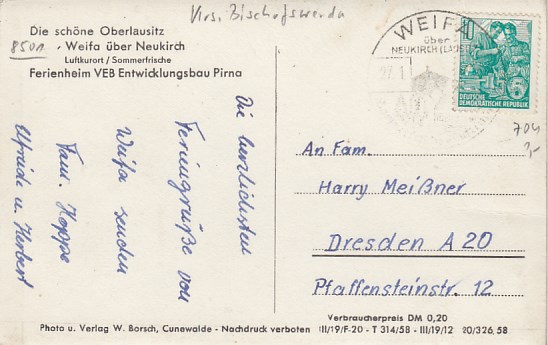 Krs. Bischofswerda
Die schöne Oberlausitz
8501
Weifa über Neukirch
Luftkurort / Sommerfrische
Ferienheim VEB Entwicklungsbau Pirna
WEIFA
über
NEUKIRCH (LAUSITZ)
10
DEUTSCHE
DEMOKRATISCHE REPUBLIK
704
Die herzlichsten
Feriengrüße von
Weifa senden
Fam. Hoppe
Elfriede u. Herbert
An Fam.
Harry Meißner
Dresden A 20
Pfaffensteinstr. 12
Verbraucherpreis DM 0,20
Photo u. Verlag W. Borsch, Cunewalde - Nachdruck verboten III/19/F-20 - T 314/58 - III/19/12 20/326,58